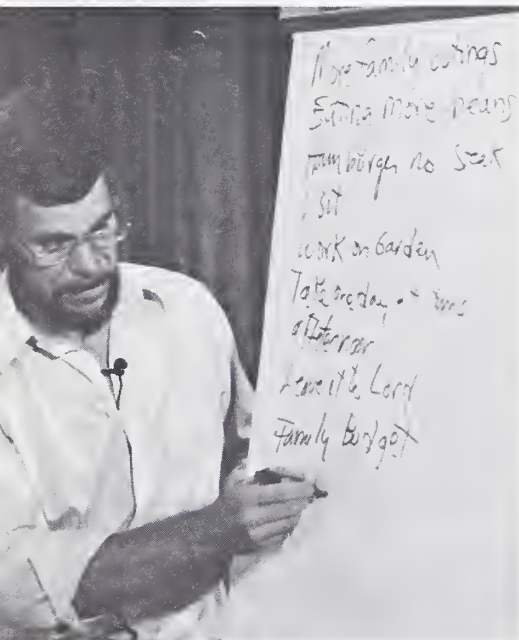 More family outings
Eating more beans
Hamburger no Steak
Work on Garden
Take one day at time
afternoon
Leave it to Lord
Family Budget